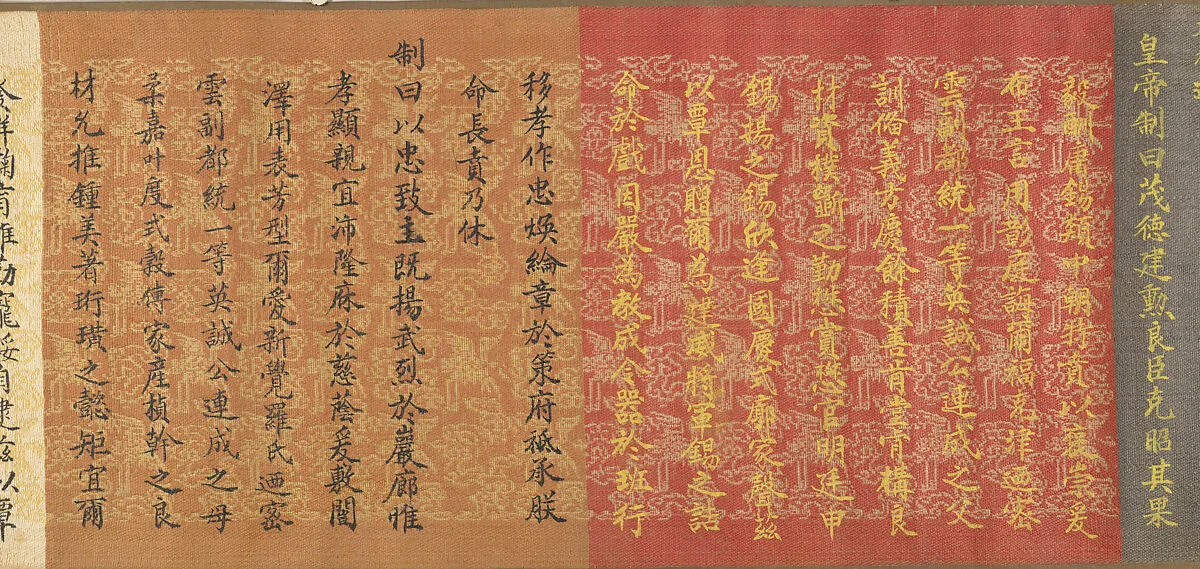 皇帝制曰茂德建勲良臣克昭其果
毅酬庸錫類中朝特賁以褒崇爰
布王言用彰庭誨爾福克津迺密
雲副都統一等英誠公連成之父
訓脩義方慶餘積善肯堂肯構良
材資樸斵之勤懋賞懋官明廷申
錫揚之錫欣逢國慶式廓家聲兹
以覃恩贈爾為建威將軍錫之誥
命於戲因嚴為教成令器於班行
移孝作忠煥綸章於策府祗承朕
命長賁乃休
制曰以忠致主既揚武烈於巖廊惟
孝顯親宜沛隆庥於慈蔭爰敷閫
澤用表芳型爾愛新覺羅氏迺密
雲副都統一等英誠公連成之母
柔嘉叶度式穀傳家產楨幹之良
材允推鍾美著珩璜之懿矩宜爾
祥鞠育維勤寵綏自逮兹以覃